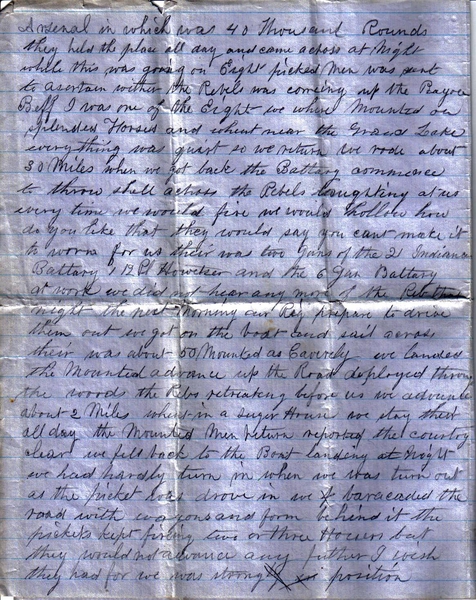 Arsenal in which was 40 thousand Rounds
they held the place all day and came across at Night
while this was going on Eight picked Men was sent
to asertain wither the Rebels was comeing up the Bayou
Beff I was one of the Eight we where Mounted on
splended Horses and whent near the Grand Lake
everything was quiet so we return we rode about
30 Miles when we got back the Battary commence
to throw shell across the Rebels laughting at us
every time we would fire we would hollow how
do you like that they would say you cant make it
to work for us their was two Guns of the 21 Indiana
Battary 1 12 P Howetser and the 6 Gun Battary
at work we did not hear any more of the
night the next Morning our Reg prepare to drive
them out we got on the boat and sail across
their was about 50 Mounted as Caverely we landed
the Mounted advance up the Road deployed throu
the woods the Rebs retreating before us we advance
about 2 Miles whent in a suger House we stay their
all day the Mounted Men return reported the country
clear we fell back to the Boat landing at Night
we had hardly turn in when we was turn out
as the picket was drove in we baracaded the
road with wagons and form behind it the
pickets kept firling two or three Hours but
they would not advance any futher I wish
they had for we was strong position